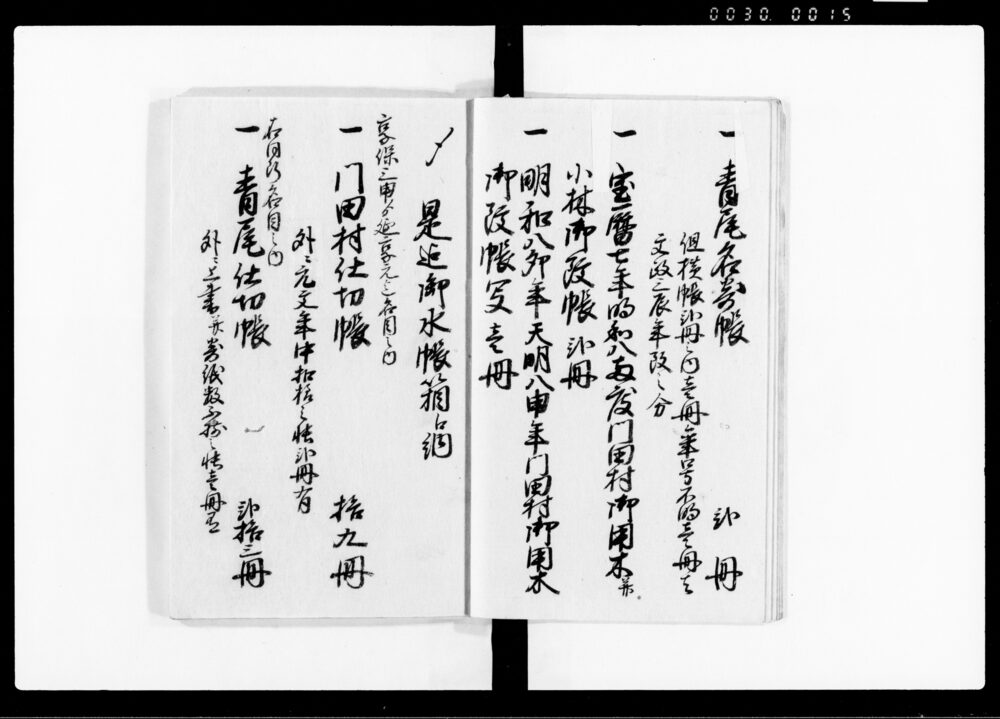 0030. 0015
一 青尾名寄帳 弐冊
但横帳弐冊之内壱冊年号不明壱冊ハ
文政三辰年改之分
一 宝暦七年明和八両度門田村御用木并
小林御改帳 弐冊
一 明和八卯年天明八申年門田村御用木
御改帳写 壱冊
〆 是迄御水帳箱ニ納
享保三申ゟ延享元迄名目之内
一 門田村仕切帳 拾九冊
外ニ元文年中扣括之帳弐冊有
右同断名目之内
一 青尾仕切帳 弐拾三冊
外ニ上書并寄紙数不揃之帳壱冊有